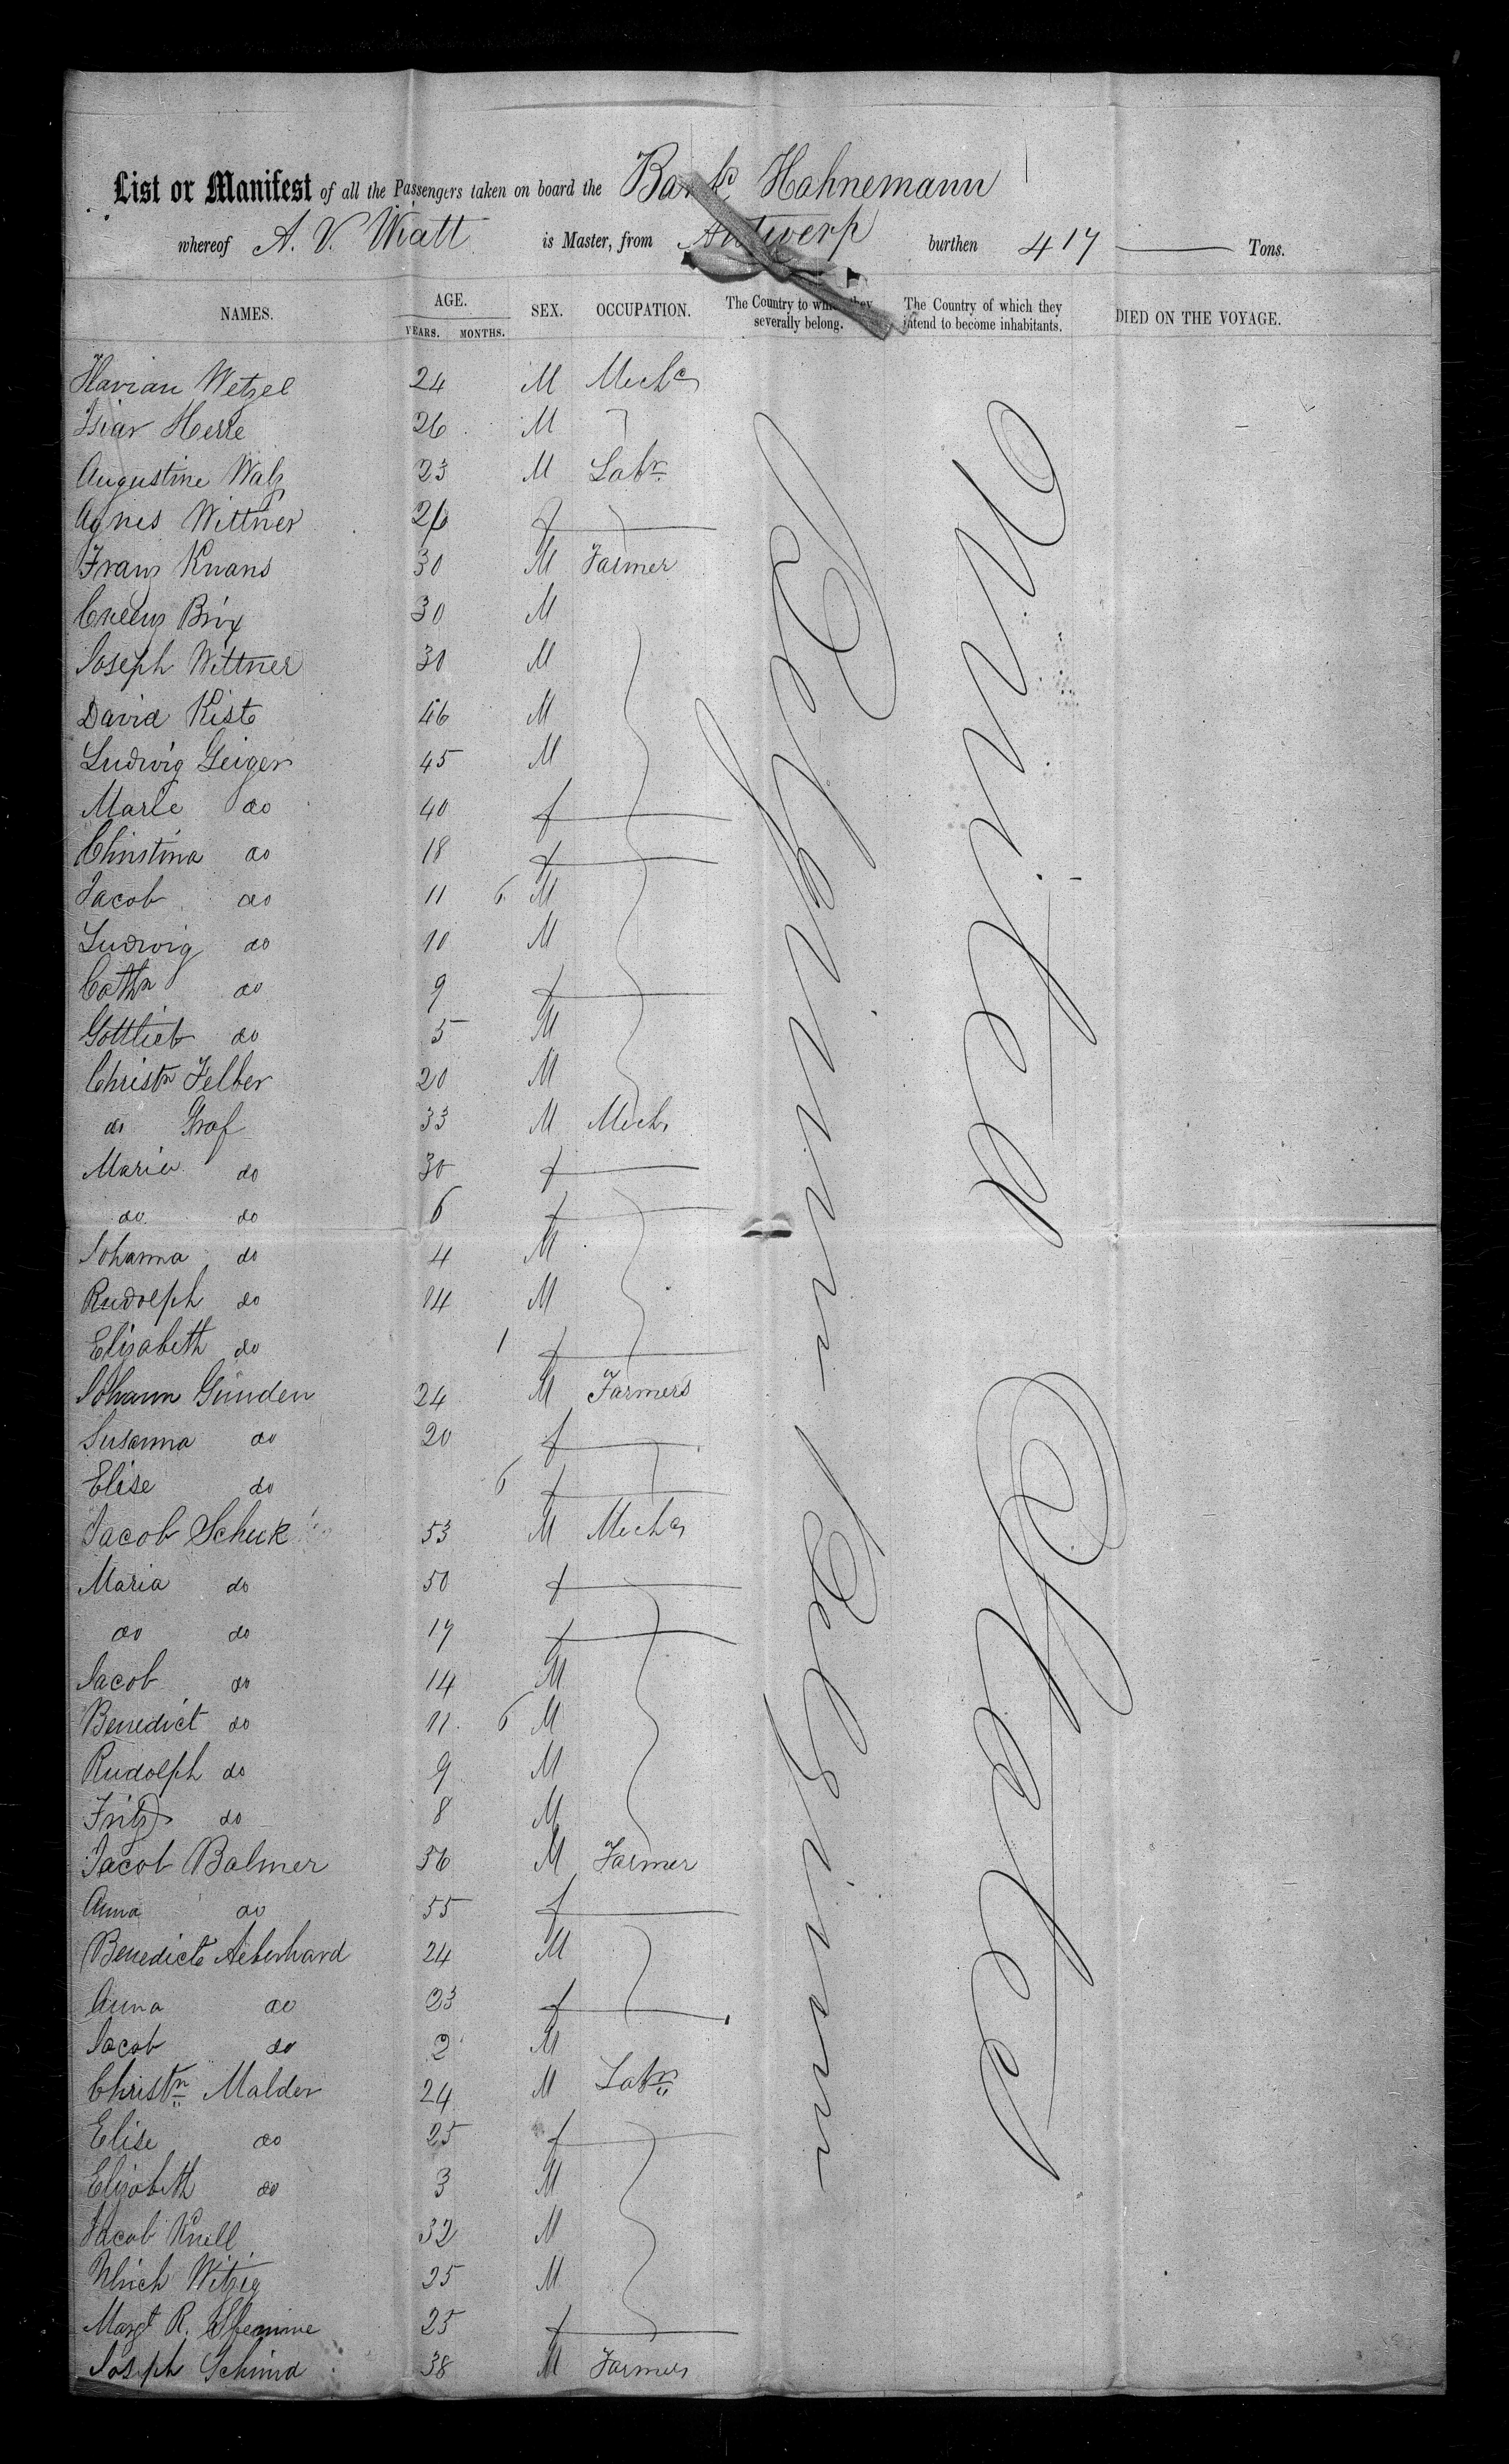 List or Manifest of all the Passengers taken on board the Bark Hahnemann
whereof A. V. Wiatt is Master, from Antwerp burthen 417 Tons.
NAMES. AGE. YEARS. MONTHS. SEX. OCCUPATION. The Country to which they severally belong. The Country of which they intend to become inhabitants. DIED ON THE VOYAGE.
Wetzel 24 M Mechc
Herre 26 M
Augustine Walz 23 M Labr
Agnes Wittner 26 f
Franz Knans 30 M Farmer
Brix 30 M
Joseph Wittner 30 M
David Kiste 46 M
Ludwig Geiger 45 M
Marie do 40 f
Christina do 18 f
Jacob do 11 6 M
Ludwig do 10 M
Cathn do 9 f
Gottlieb do 5 M
Christn Felber 20 M
do Graf 33 M Mech
Maria do 30 f
do do 6 f
Johanna do 4 M
Rudolph do 14 M
Elisabeth do 1 f
Johann Gunden 24 M Farmers
Susanna do 20 f
Elise do 6 f
Jacob Schuk 53 M Mechc
Maria do 50 f
do do 17 f
Jacob do 14 M
Benedict do 11 6 M
Rudolph do 9 M
Fritz do 8 M
Jacob Balmer 36 M Farmer
Anna do 55 f
Benedicte Aeberhard 24 M
Anna do 23 f
Jacob do 2 M
Christn Malder 24 M Labr
Elise do 25 f
Elizabeth do 3 M
Jacob Knell 32 M
Ulrich Witzig 25 M
Margt R. 25 f
Joseph Schmid 38 M Farmer
United States